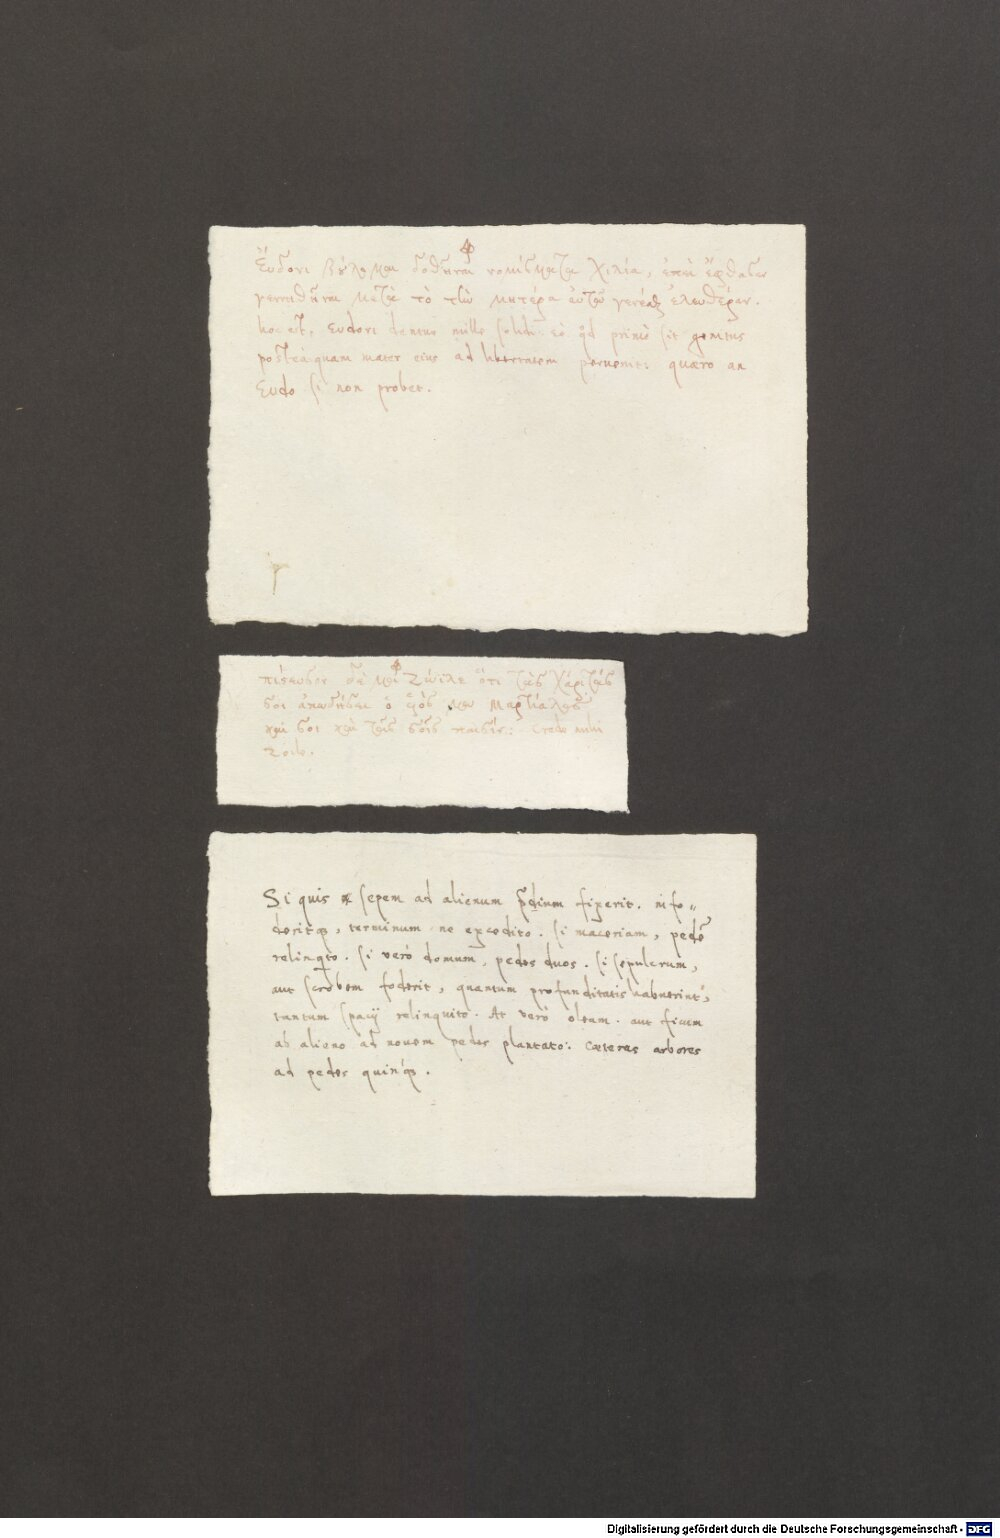 Εὔδονι βούλομαι δοθῆναι νομίσματα χιλία, ἐπεὶ ἔφθασεν
γεννηθῆναι μετὰ τὸ τὴν μητέρα αὐτοῦ γενέσθαι ἐλευθέραν.
hoc est, Eudoni dentur mille solidi. eò qđ primò sit genitus
posteà quam mater eius ad libertatem peruenit: quæro an
Eudo si non probet.
πίστευσον δέ μοι Ζώιλε ὅτι τὰς χάριτάς
σοι ἀποδώσει ὁ υἱός μου Μαρτιάλης
καὶ σοι καὶ τοῖς σοῖς παισίν: Crede mihi
Zoile.
Si quis sepem ad alienum p̄dium fixerit. info„
deritq́ȝ, terminum ne excedito. si maceriam, pedē
relinq̄to. si verò domum, pedes duos. si sepulcrum,
aut scrobem foderit, quantum profunditatis habuerint,
tantum spacij relinquito. At verò oleam. aut ficum
ab alieno ad nouem pedes plantato: cæteras arbores
ad pedes quinq́ȝ.
Digitalisierung gefördert durch die Deutsche Forschungsgemeinschaft - DFG